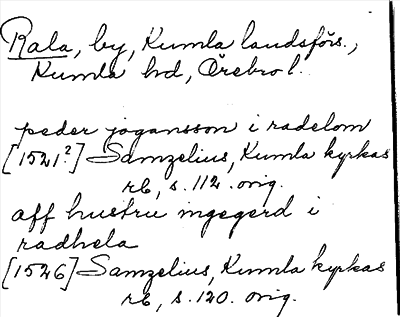 Rala, by, Kumla landsförs.,
Kumla hd, Örebro l.
peder jogansson i radelom
[1521?] Samzelius, Kumla kyrkas
rb, s. 112. orig.
aff hustru ingegerd i
radhela
[1526] Samzelius, Kumla kyrkas
rb, s. 120. orig.